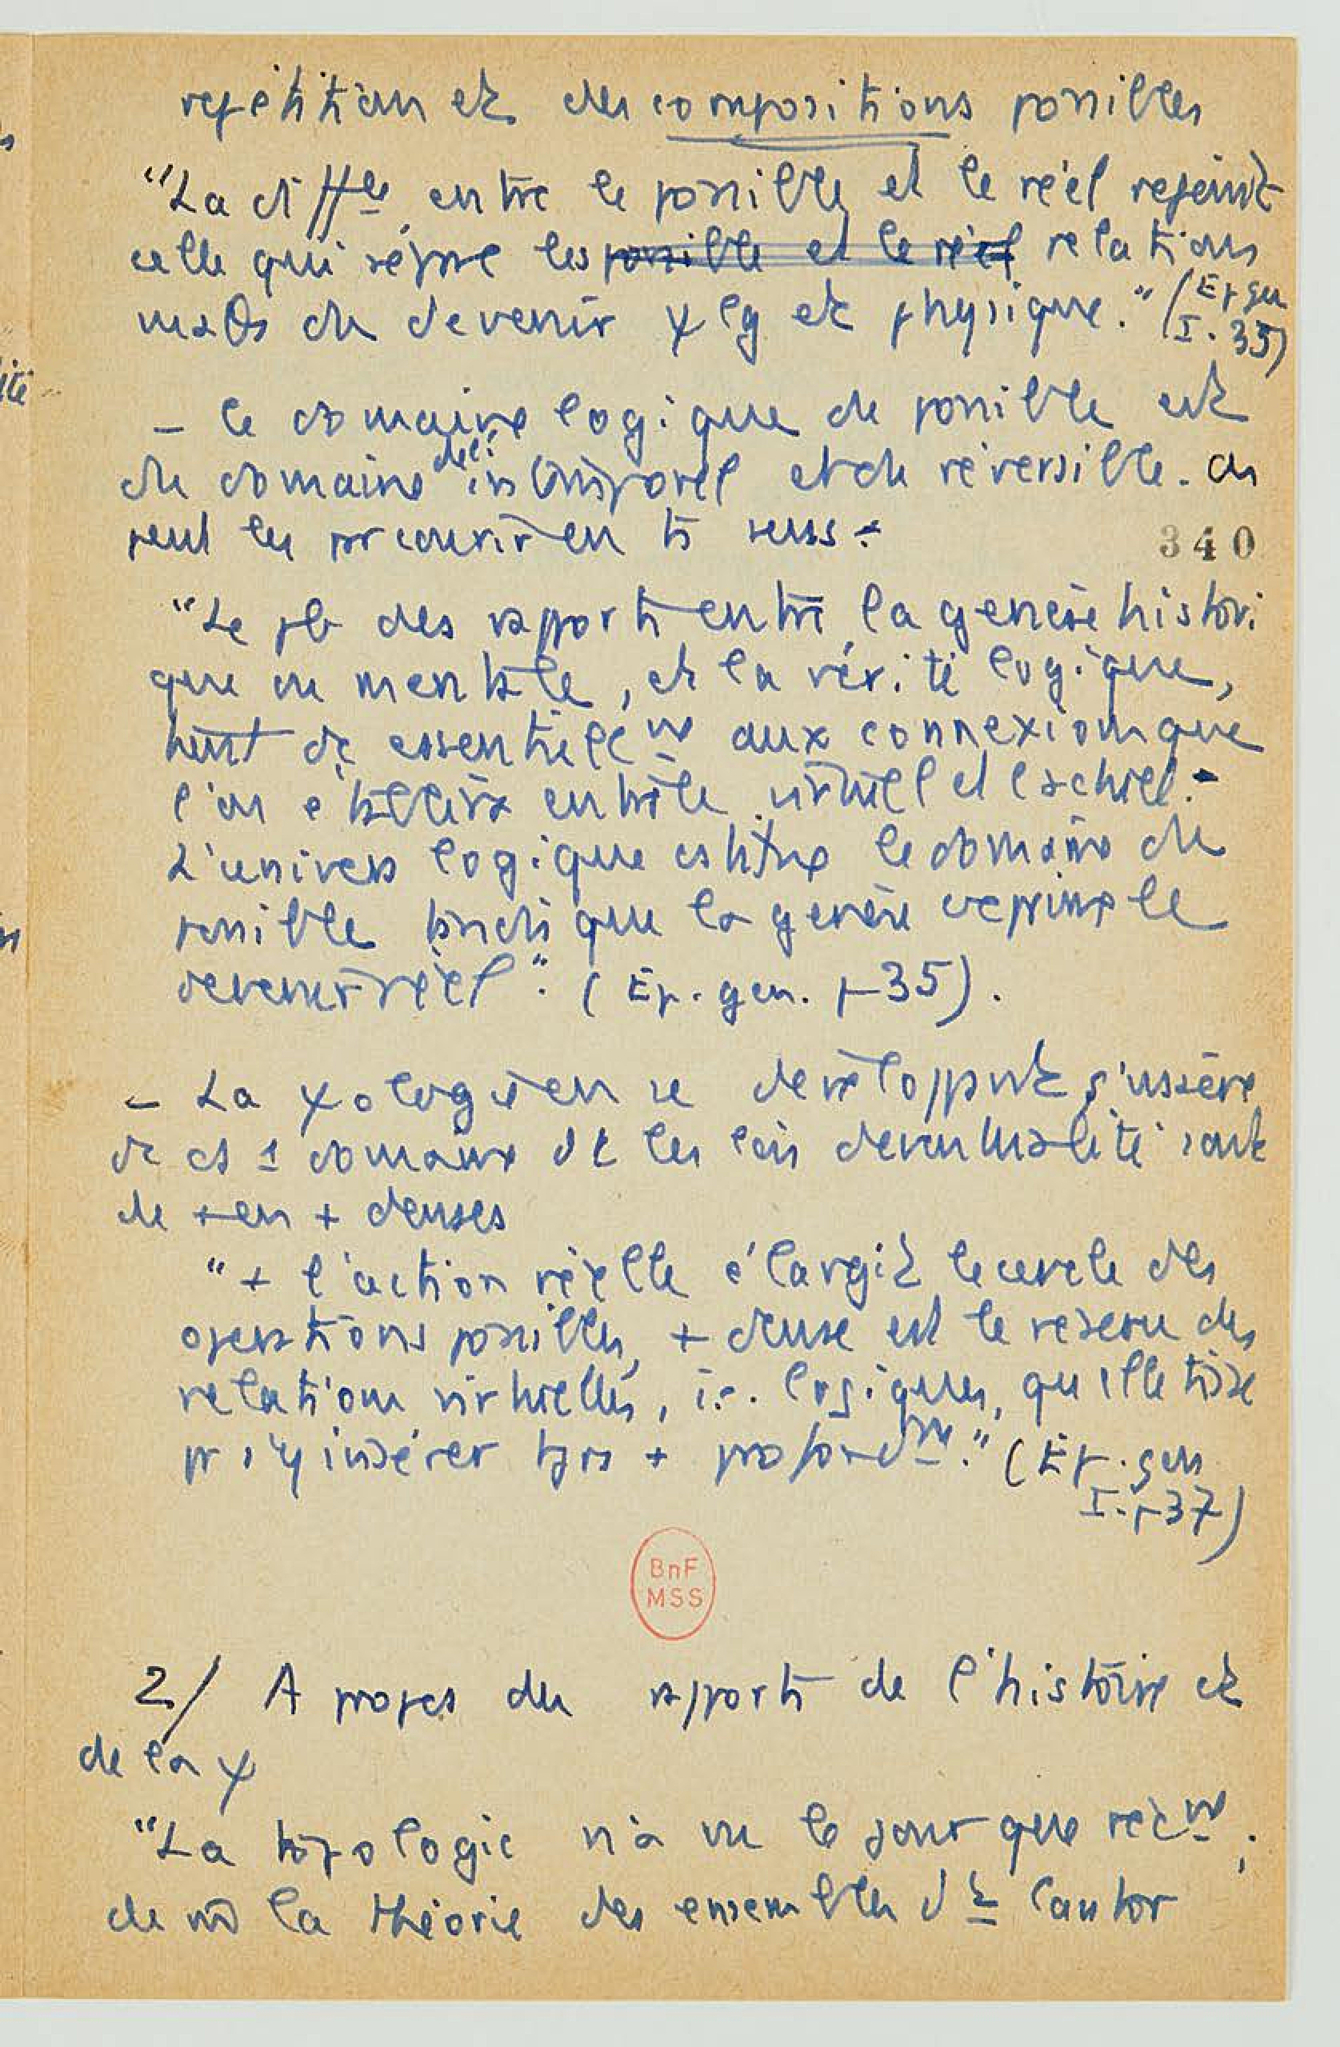 répétition et des compositions possibles
"La diffce entre le possible et le réel rejoint
celle qui sépare les possible et le réel relations
maths du devenir ψlg et physique." (Ep gen
I. 35)
– le domaine logique du possible est
du domaine de l'intemporel et du réversible. on
peut les parcourir en ts sens.
340
"Le pb des rapports entre la genèse histori
que ou mentale, et la vérité logique,
tient dc essentiellemt aux connexions que
l'on établira entre le virtuel et l'actuel.
L'univers logique est le domaine du
possible tandis que la genèse exprime le
devenir réel". (Ep. gen. p 35).
– La ψologie en se développant s'insère
de ds 1 domaine dt les lois d'éventualité sont
de + en + denses
"+ l'action réelle élargit le cercle des
opérations possibles, + dense est le réseau des
relations virtuelles, i.e. logiques, qu'elle tisse
pr s'y insérer tjrs + profondmt." (Ep. gen
I. p 37)
BnF
MSS
2/ A propos des rapports de l'histoire et
de la ψ
"La topologie n'a vu le jour que récmt;
de m̂ la théorie des ensembles dt Cantor